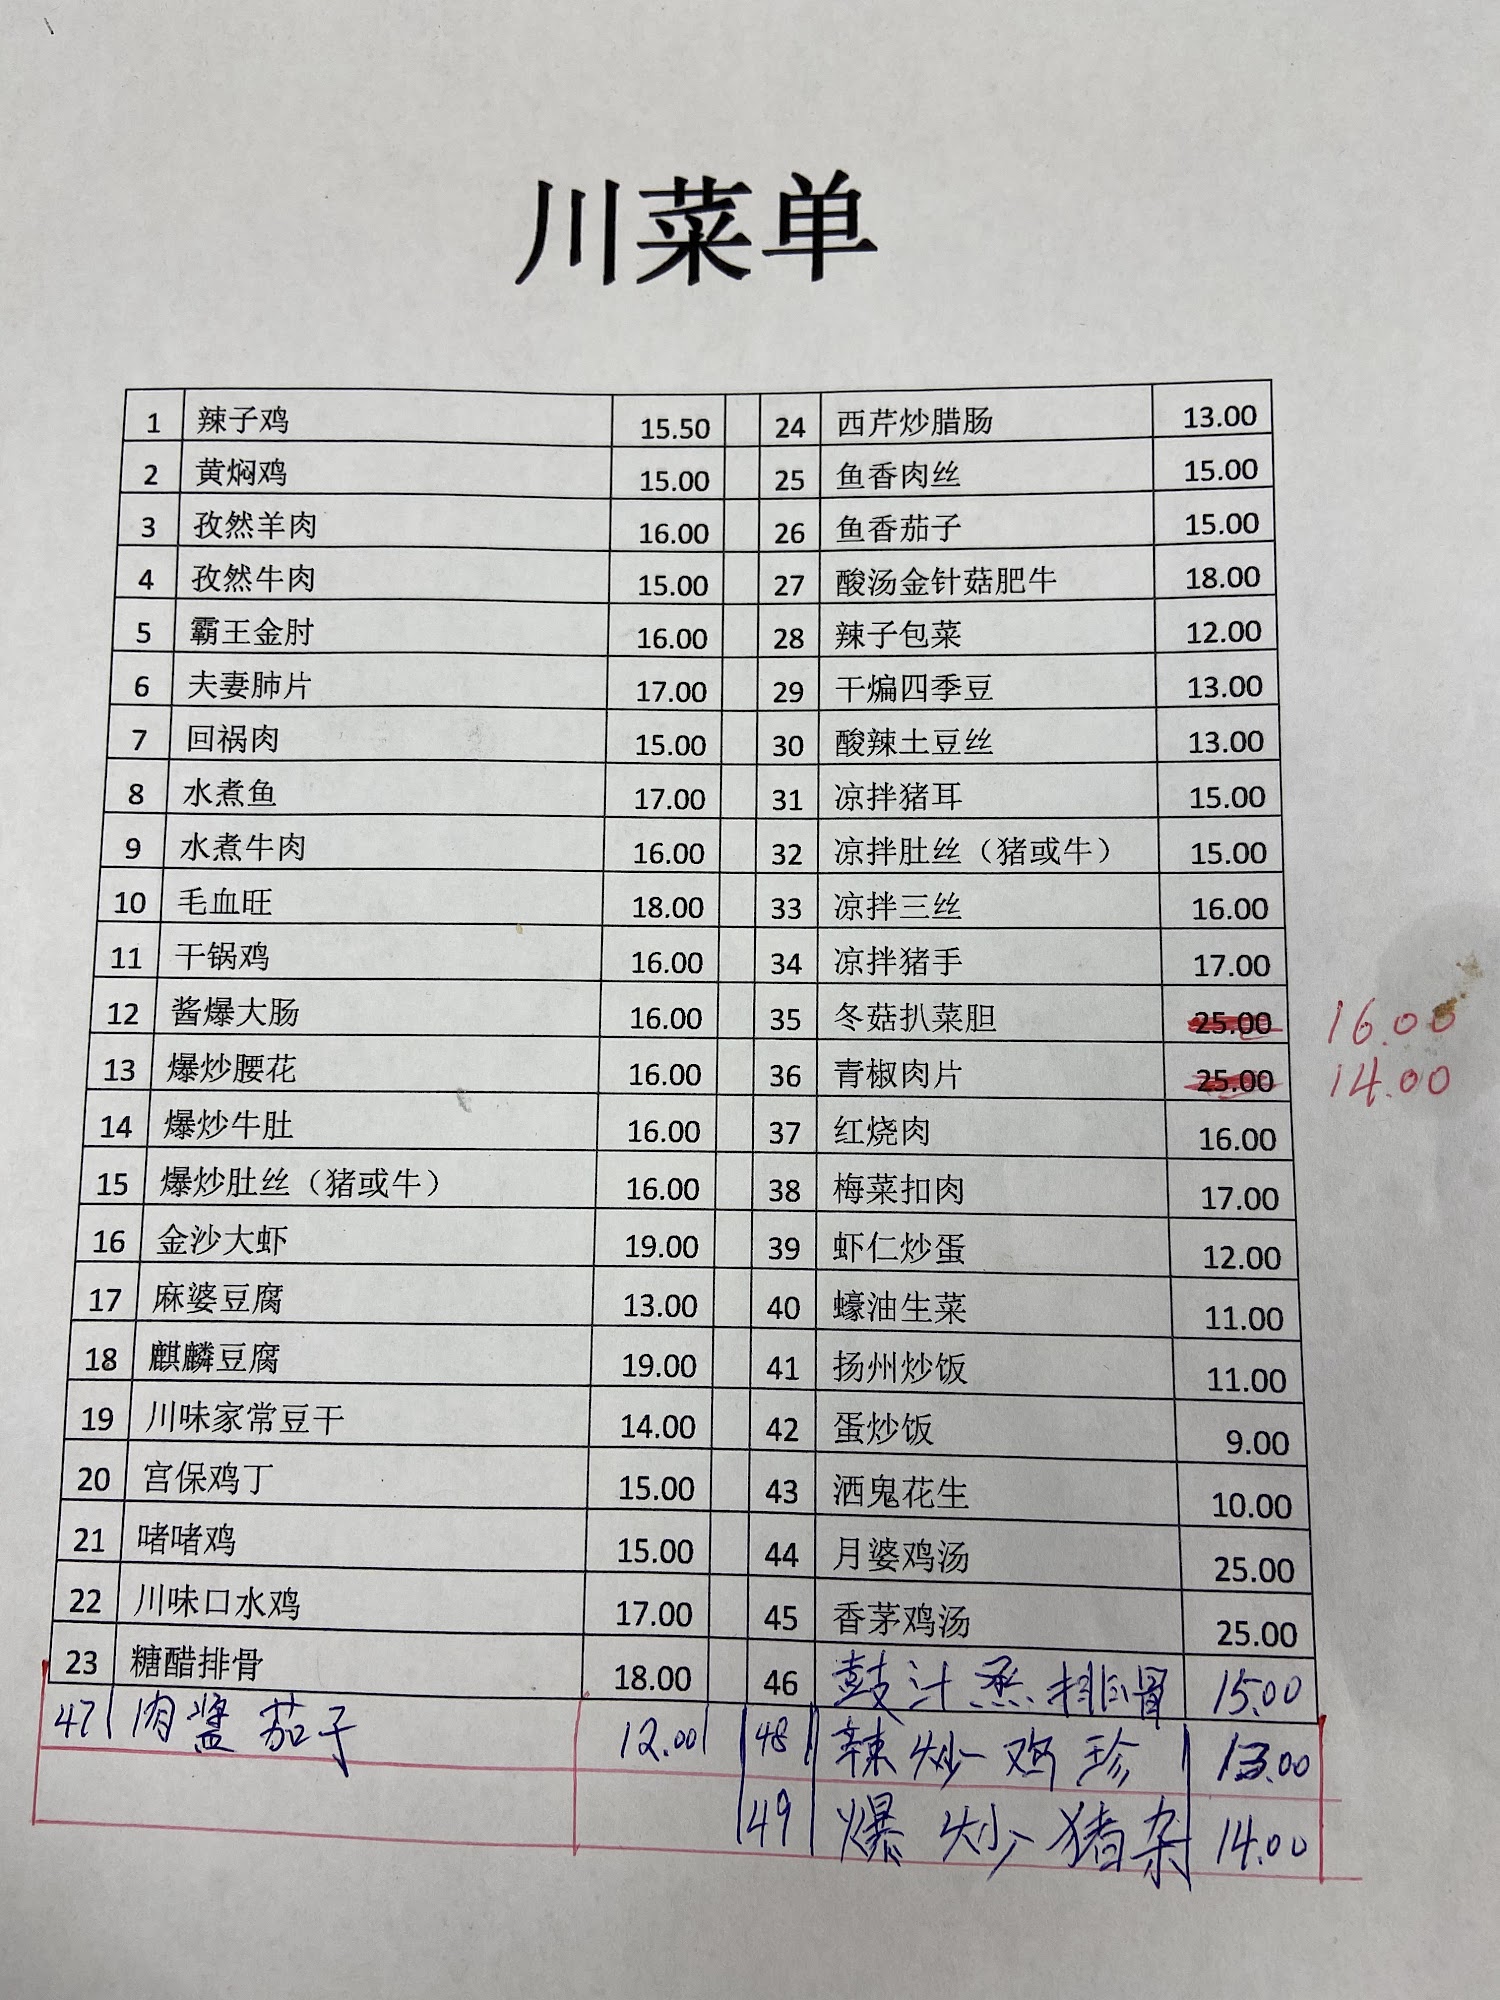 川菜单
1 辣子鸡 15.50 24 西芹炒腊肠 13.00
2 黄焖鸡 15.00 25 鱼香肉丝 15.00
3 孜然羊肉 16.00 26 鱼香茄子 15.00
4 孜然牛肉 15.00 27 酸汤金针菇肥牛 18.00
5 霸王金肘 16.00 28 辣子包菜 12.00
6 夫妻肺片 17.00 29 干煸四季豆 13.00
7 回祸肉 15.00 30 酸辣土豆丝 13.00
8 水煮鱼 17.00 31 凉拌猪耳 15.00
9 水煮牛肉 16.00 32 凉拌肚丝（猪或牛） 15.00
10 毛血旺 18.00 33 凉拌三丝 16.00
11 干锅鸡 16.00 34 凉拌猪手 17.00
12 酱爆大肠 16.00 35 冬菇扒菜胆 25.00 16.00
13 爆炒腰花 16.00 36 青椒肉片 25.00 14.00
14 爆炒牛肚 16.00 37 红烧肉 16.00
15 爆炒肚丝（猪或牛） 16.00 38 梅菜扣肉 17.00
16 金沙大虾 19.00 39 虾仁炒蛋 12.00
17 麻婆豆腐 13.00 40 蠔油生菜 11.00
18 麒麟豆腐 19.00 41 扬州炒饭 11.00
19 川味家常豆干 14.00 42 蛋炒饭 9.00
20 宫保鸡丁 15.00 43 洒鬼花生 10.00
21 啫啫鸡 15.00 44 月婆鸡汤 25.00
22 川味口水鸡 17.00 45 香茅鸡汤 25.00
23 糖醋排骨 18.00 46 鼓汁烝排骨 15.00
47 肉酱茄子 12.00 48 辣炒鸡珍 13.00
49 爆炒猪杂 14.00